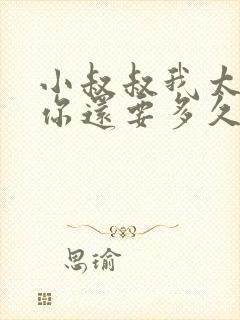 小叔叔我大
你還要多久
思瑜